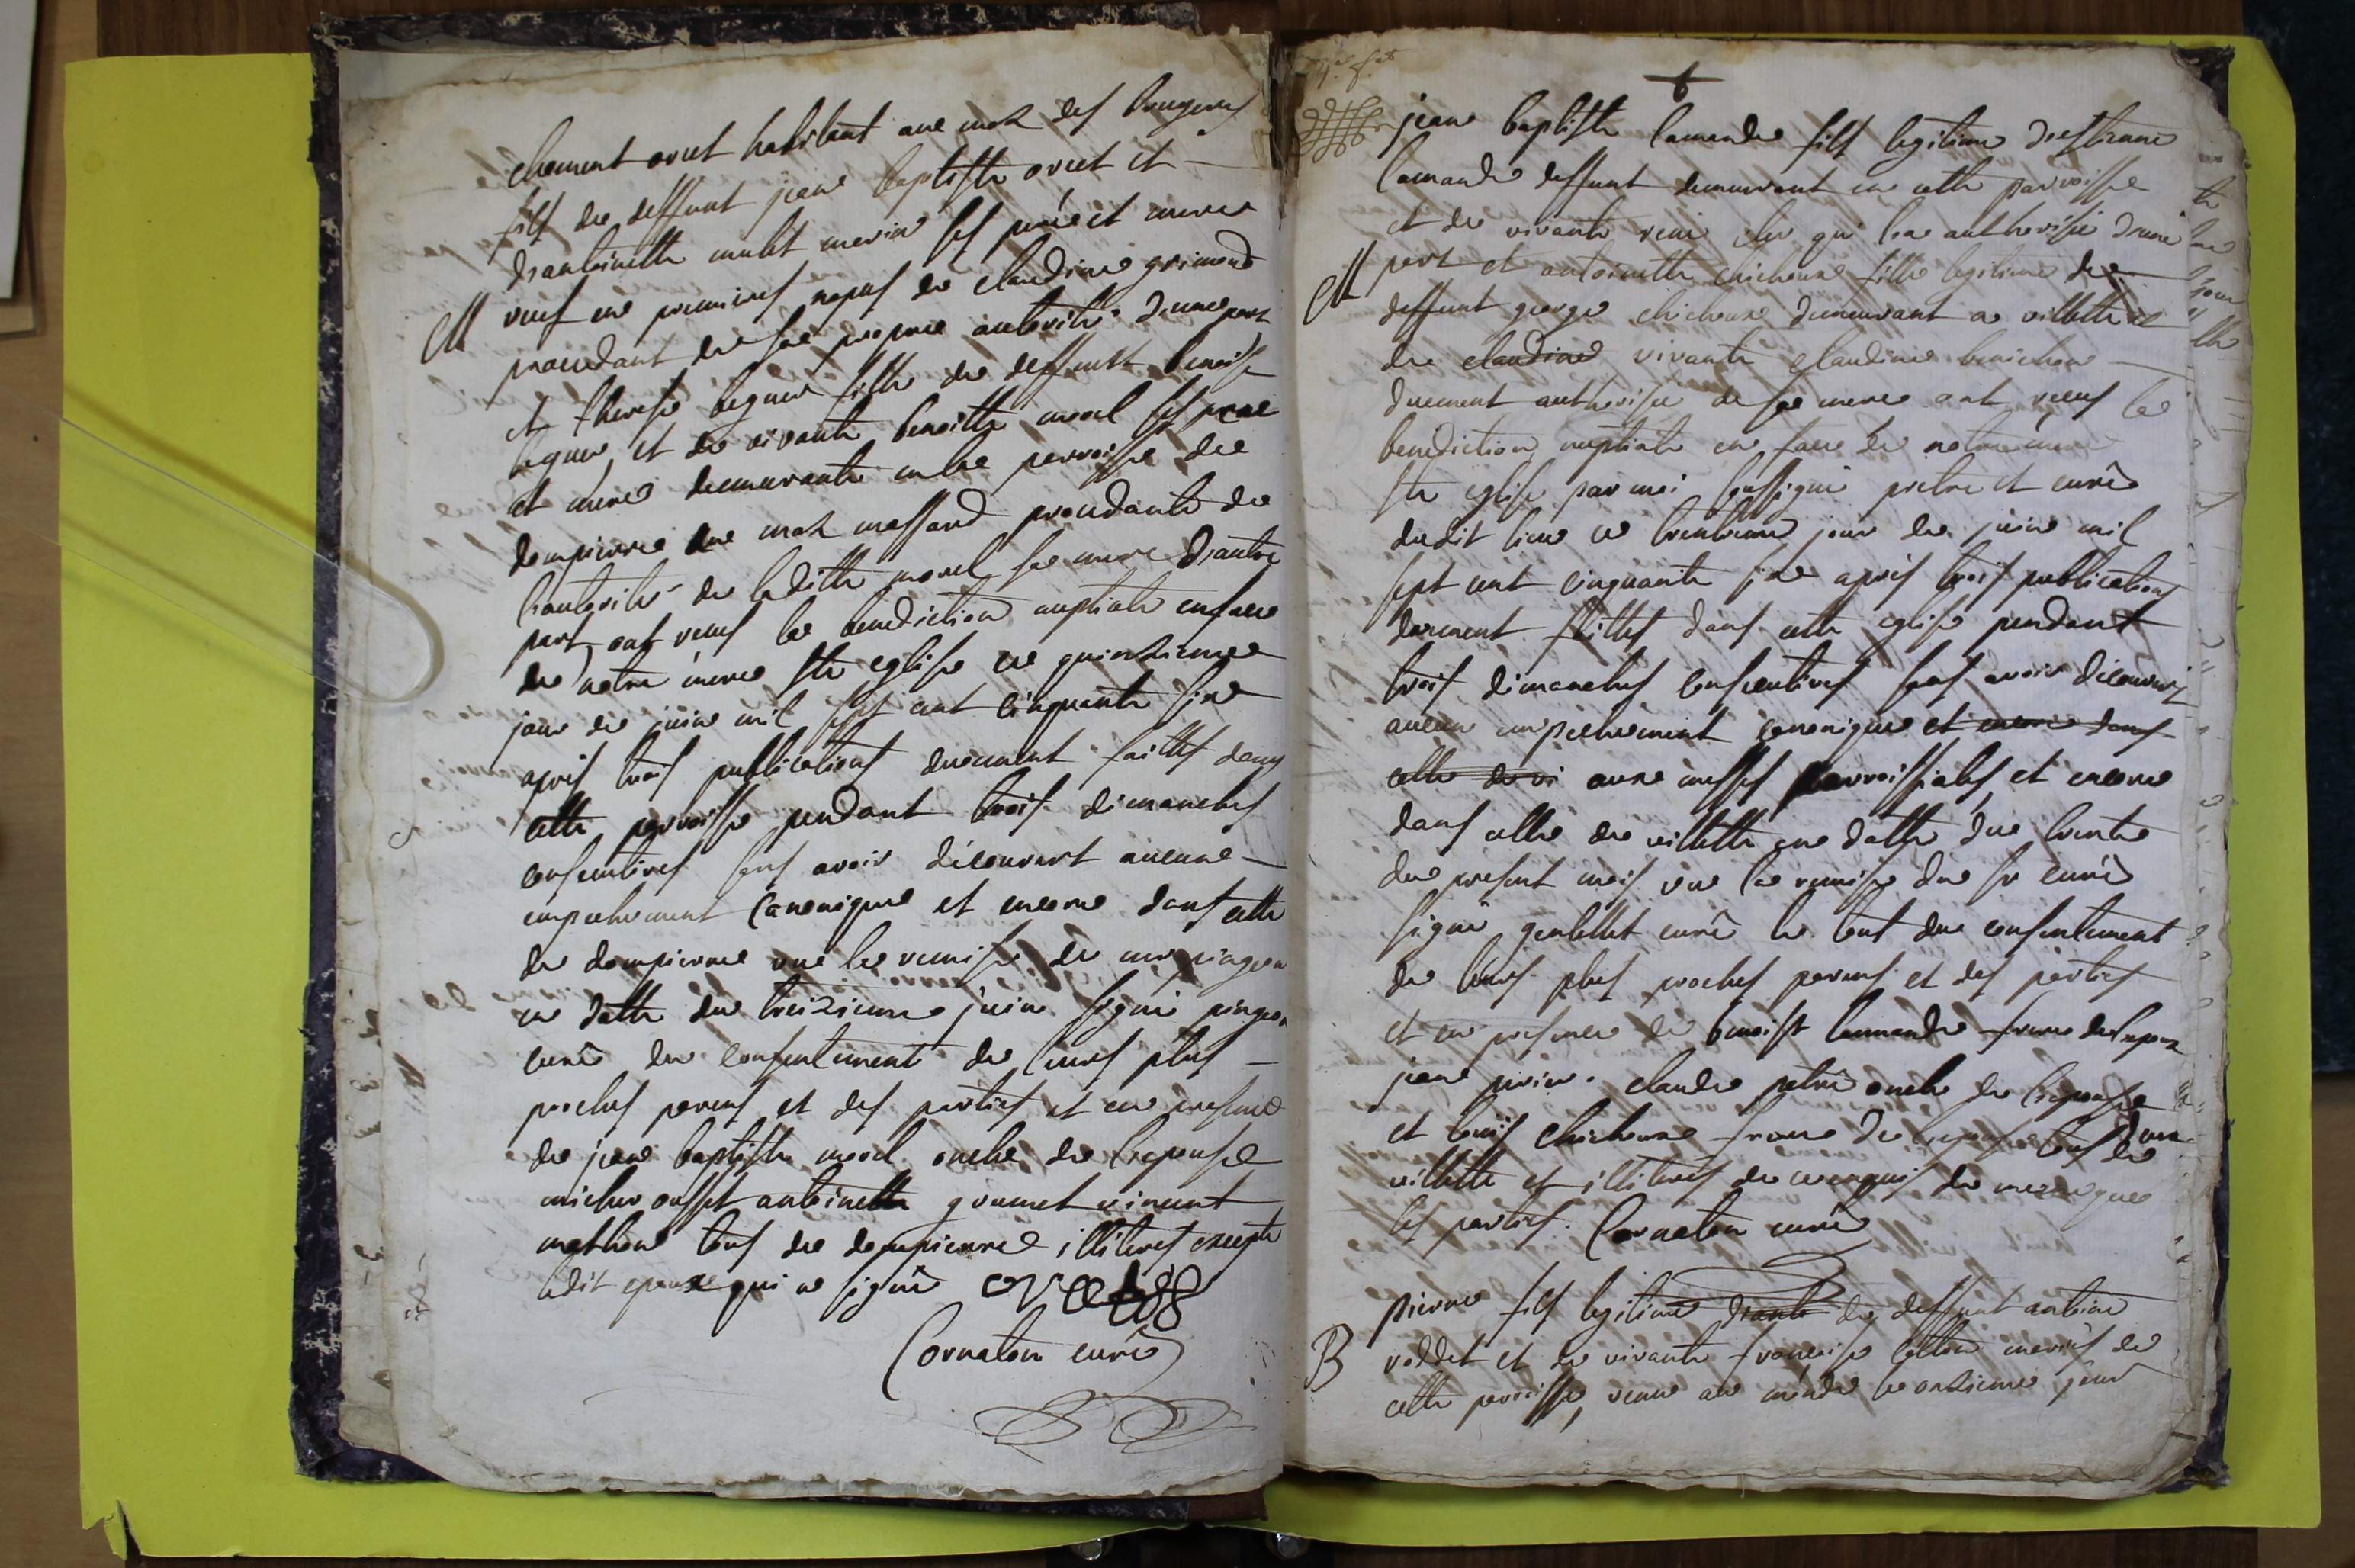 clement ovet habitant au mas des brugeres
fils de deffunt jean baptiste ovet et
d'antoinette mulet mariés ses père et mere
M veuf en premieres nopces de claudine grimond
procedant de sa propre autorité d'une part
et therese beguer fille de deffunt benoist
beguer et de vivante benoitte morel ses pere
et mere demeurante en la parroisse de
dompierre au mas massard procedante de
l'autorité de laditte morel sa mere d'autre
part ont receus la benediction nuptiale en face
de notre mere ste eglise ce quinzieme
jour de juin mil sept cent cinquante six
apres trois publications duement faittes dans
cette parroisse pendant trois dimanches
consecutives sans avoir découvert aucune
empechement canonique et encore dans celle
de dompierre vue la remise de mr pingeon
en datte du treizieme juin signé pingeon
curé du consentement de leurs plus
proches parens et des parties et en presence
de jean baptiste morel oncle de l'epouse
michel ousset antoinette grumet vincent
mathieu tous de dompierre illiterés excepte
ledit epoux qui a signé ovet
Cornaton curé
jean baptiste lamande fils legitime d'estienne
lamande deffunt demeurant en cette parroisse
et de vivante reine cler qui l'a authorisé d'une
M part et antoinette chicheux fille legitime de
deffunt george chicheux demeurant a villette et
de claudine vivante claudine benichon
duement authorisée de sa mere ont receus la
benediction nuptiale en face de notre mere
ste eglise par moi soussigné pretre et curé
dudit lieu ce trentieme jour de juin mil
sept cent cinquante six apres trois publications
duement faittes dans cette eglise pendant
trois dimanches consecutives sans avoir découvert
aucun empechement canonique et encore dans
celle de vi aux messes parroissiales et encore
dans celle de villette en datte du trente
du present mois vue la remise du sr curé
signé genellet curé le tout du consentement
de leurs plus proches parens et des parties
et en presence de benoist lamande frere de l'epoux
jean claude oncle de l'epouse
et louis chicheux frere de l'epouse tous de
villette et illiterés de ce enquis de meme que
les parties. Cornaton curé
pierre fils legitime d'anto de deffunt antoine
B roddet et de vivante francoise mariés de
cette parroisse, venu au monde le onzieme jour